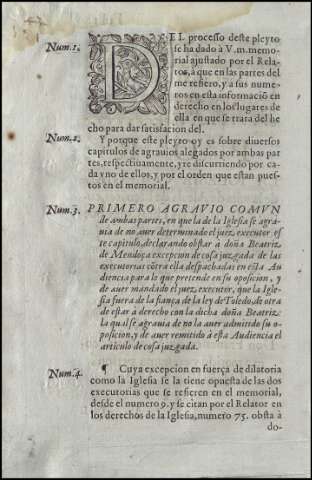 Num.1.
DEL processo deste pleyto
se ha dado à V.m. memo-
rial ajustado por el Rela-
tor, à que en las partes del
me refiero, y a sus nume-
ros en esta informació en
derecho en los lugares de
ella en que se trata del he
cho para dar satisfacion del.
Num.2.
Y porque este pleyto oy es sobre diuersos
capitulos de agrauios alegados por ambas par
tes, respectiuamente, yre discurriendo por ca-
da vno de ellos, y por el orden que estan pues-
tos en el memorial.
Num.3.
PRIMERO AGRAVIO COMVN
de ambas partes, en que la de la Iglesia se agra-
uia de no auer determinado el juez executor es
te capitulo, declarando obstar à doña Beatriz
de Mendoça excepcion de cosa juzgada de las
executorias cōtra ella despachadas en esta Au
diencia para lo que pretende en su oposicion, y
de auer mandado el juez executor, que la Igle-
sia fuera de la fiança de la ley de Toledo, de otra
de estar à derecho con la dicha doña Beatriz:
la qual se agrauia de no la auer admitido su o-
posicion, y de auer remitido à esta Audiencia el
articulo de cosa juzgada.
Num.4.
¶ Cuya excepcion en fuerça de dilatoria
como la Iglesia se la tiene opuesta de las dos
executorias que se refieren en el memorial,
desde el numero 9. y se citan por el Relator en
los derechos de la Iglesia, numero 75. obsta à
do-